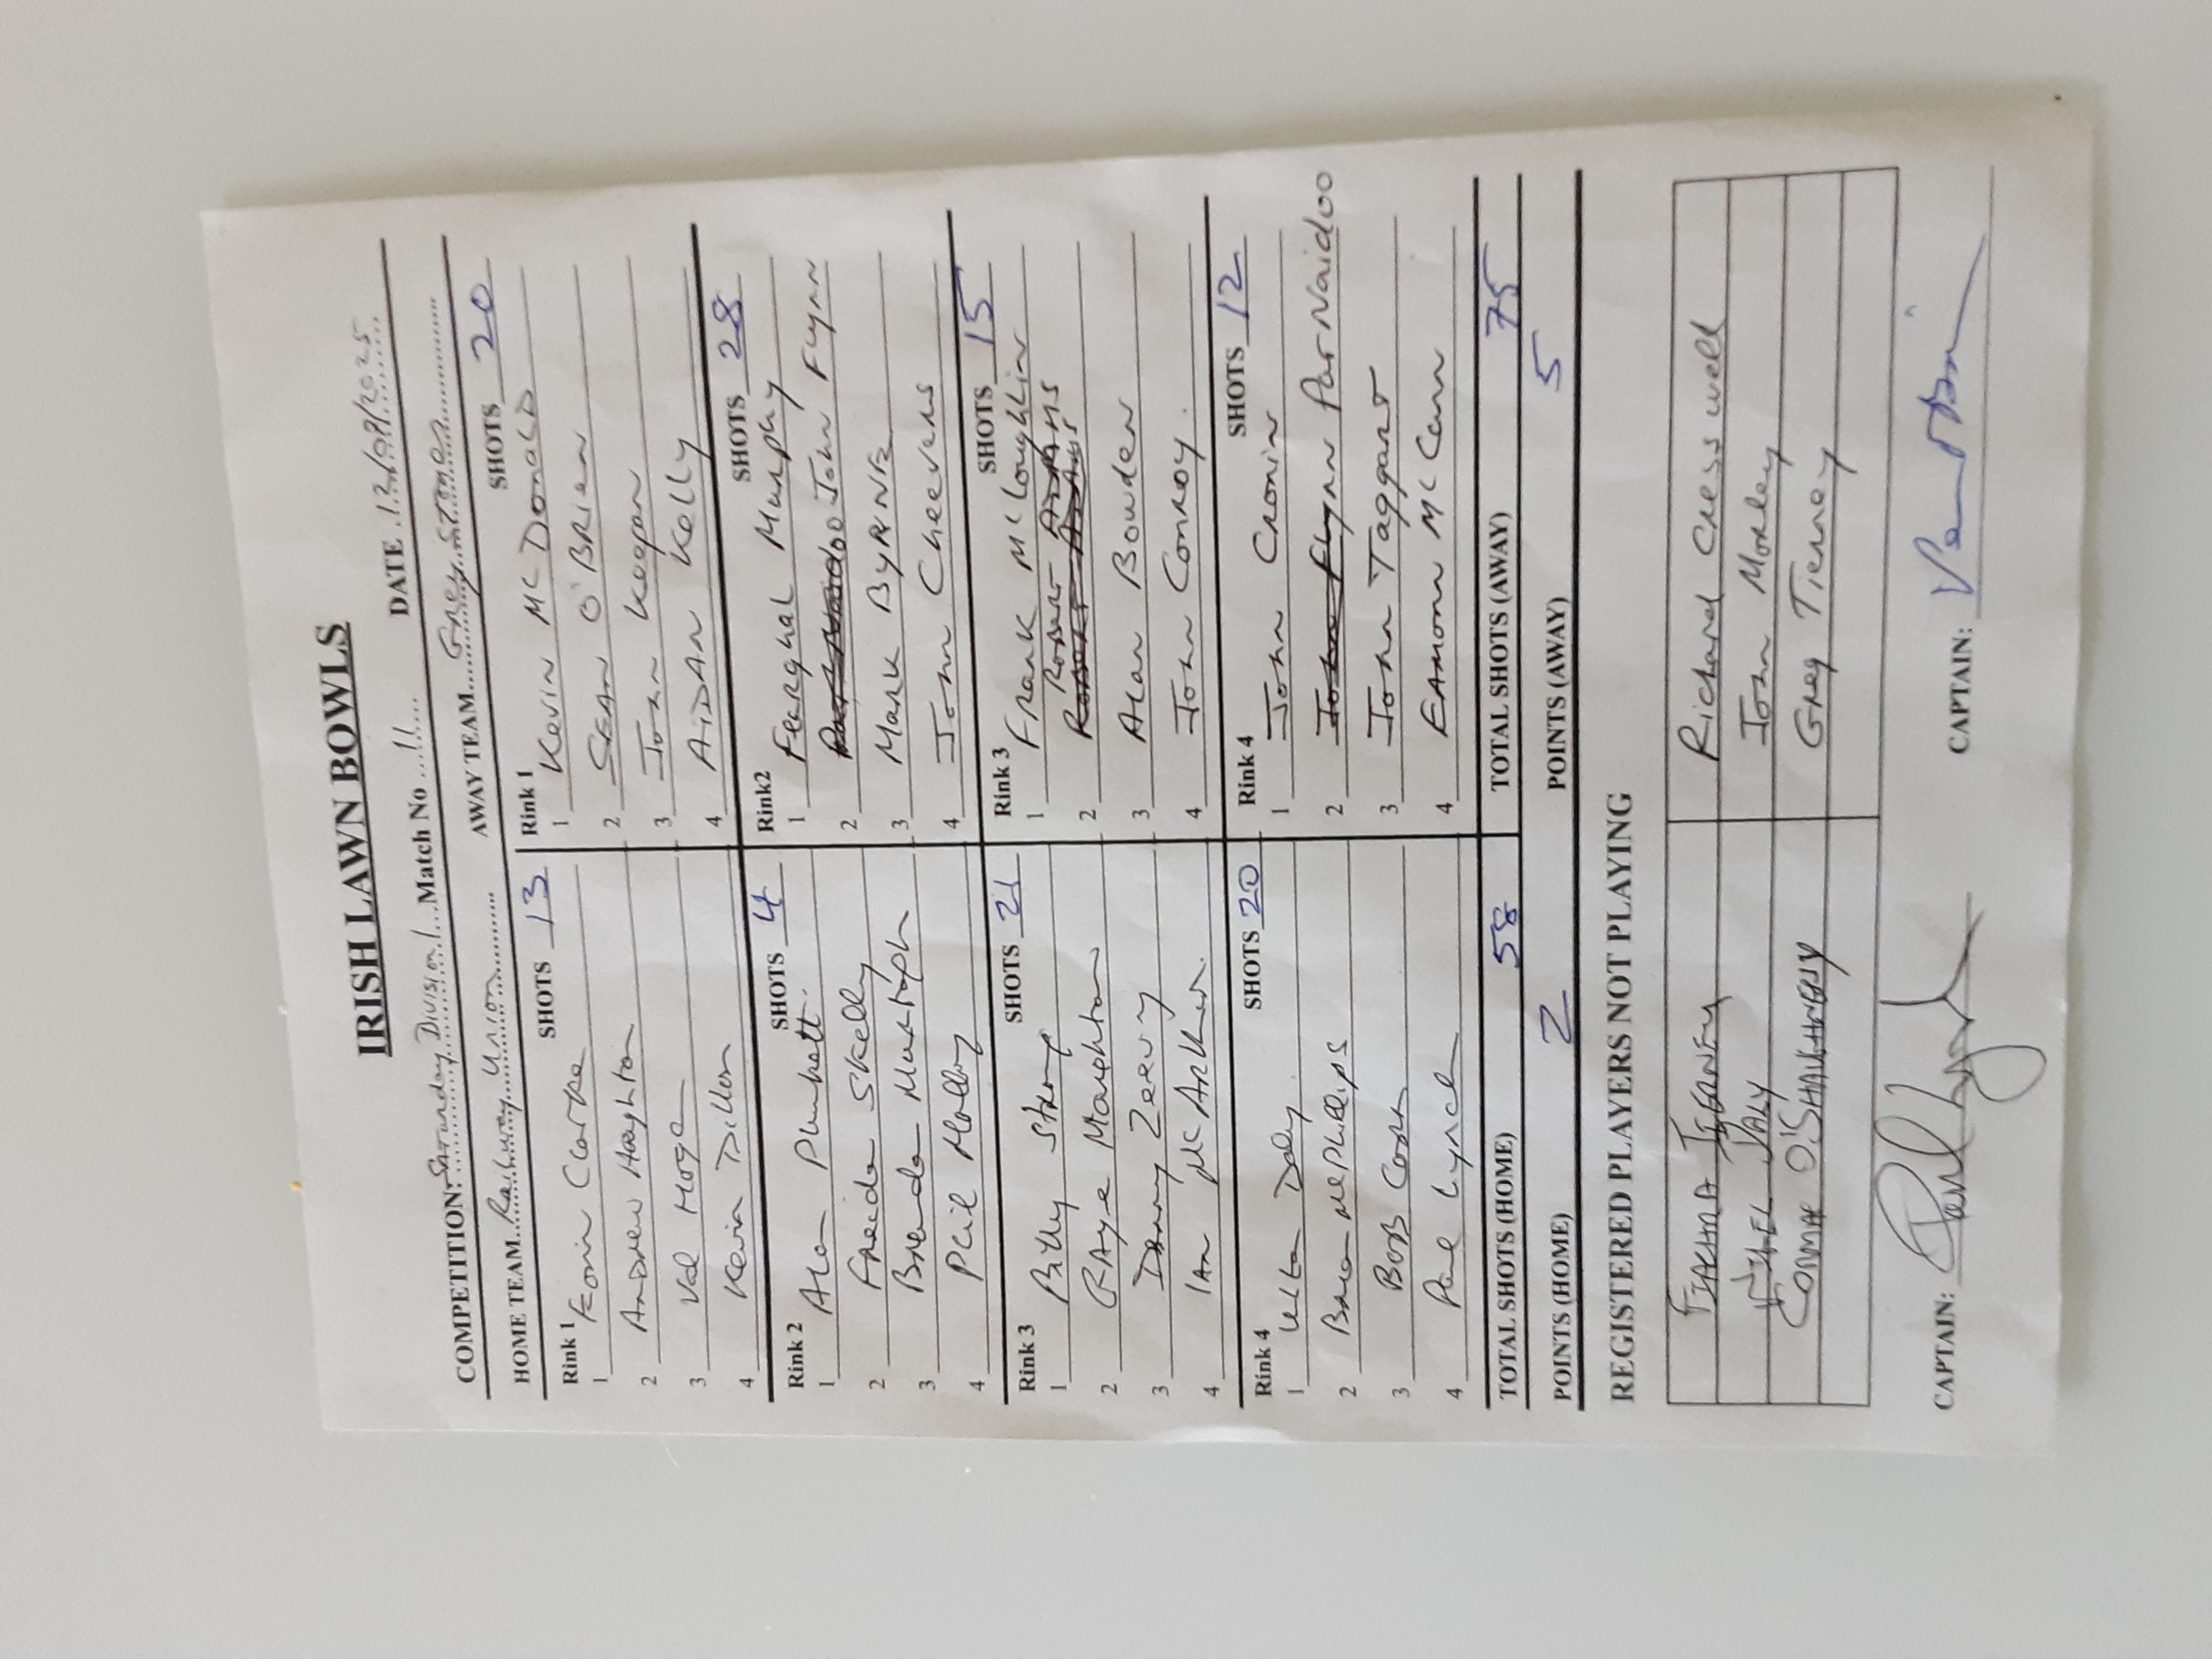 IRISH LAWN BOWLS
COMPETITION: Saturday Division 1 Match No 11 DATE 13/09/2025
HOME TEAM Railway Union AWAY TEAM Grey Stones
SHOTS 13 SHOTS 20
Rink 1 Rink 1
1 Kevin Clarke 1 Kevin McDonald
2 Andrew Houghton 2 SEAN O'BRIEN
3 Val Hogan 3 John Keegan
4 Kevin Dillon 4 AIDAN Kelly
SHOTS 4 SHOTS 28
Rink 2 Rink2
1 Alan Plunkett 1 Fearghal Murphy
2 Freida Skelly 2 John Flynn
3 Brendan Murtagh 3 Mark BYRNE
4 Phil Molloy 4 John Cheevers
SHOTS 21 SHOTS 15
Rink 3 Rink 3
1 Billy 1 Frank McLoughlin
2 2 Robert ADAMS
3 Danny 3 Alan Bowden
4 Ian McArthur 4 John Conroy.
SHOTS 20 SHOTS 12
Rink 4 Rink 4
1 Daly 1 John Cronin
2 McPhillips 2 Par Naidoo
3 Bob 3 John Taggart
4 Paul Lynch 4 EAMONN McCann
TOTAL SHOTS (HOME) 58 TOTAL SHOTS (AWAY) 75
POINTS (HOME) 2 POINTS (AWAY) 5
REGISTERED PLAYERS NOT PLAYING
FIACHRA TIERNEY Richard Cresswell
DALY John Morley
O'SHAUGHNESSY Greg Tierney
CAPTAIN: CAPTAIN: